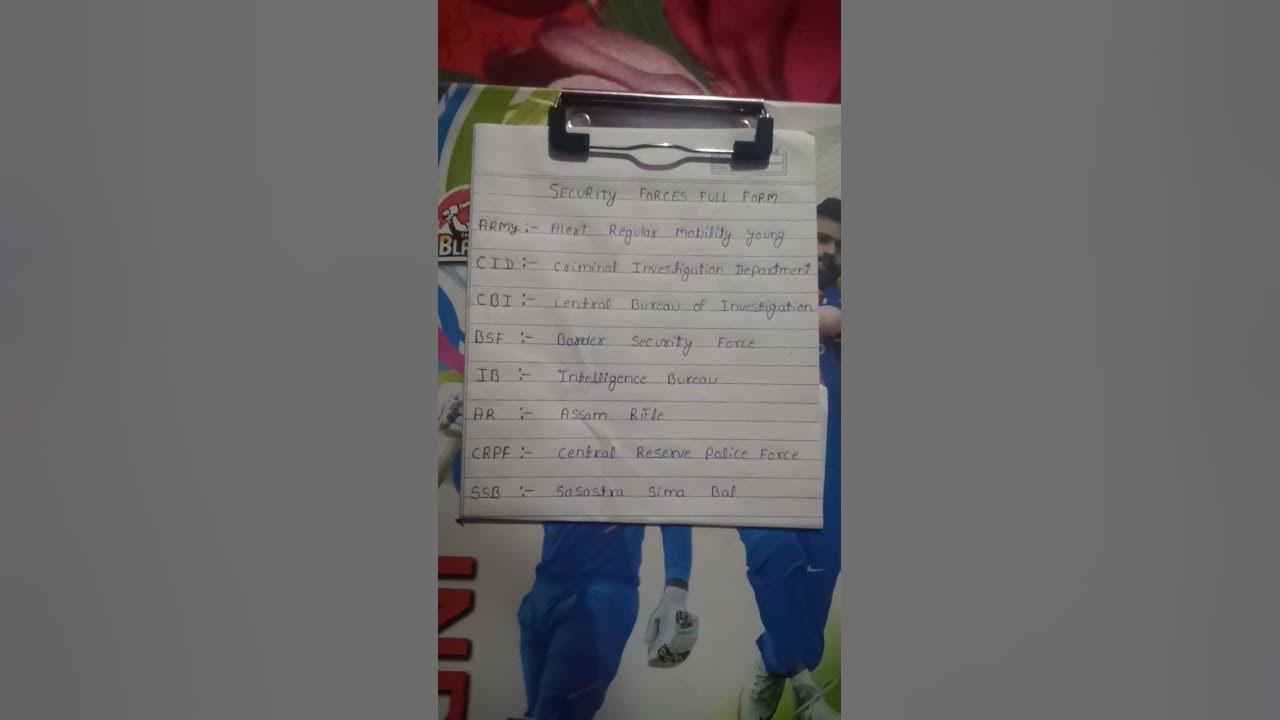 SECURITY FORCES FULL FORM
ARMY :- Alert Regular mobility young
CID :- Criminal Investigation Department
CBI :- Central Bureau of Investigation
BSF :- Border Security Force
IB :- Intelligence Bureau
AR :- Assam Rifle
CRPF :- Central Reserve Police Force
SSB :- Sasastra Sima Bal
BLA
IND